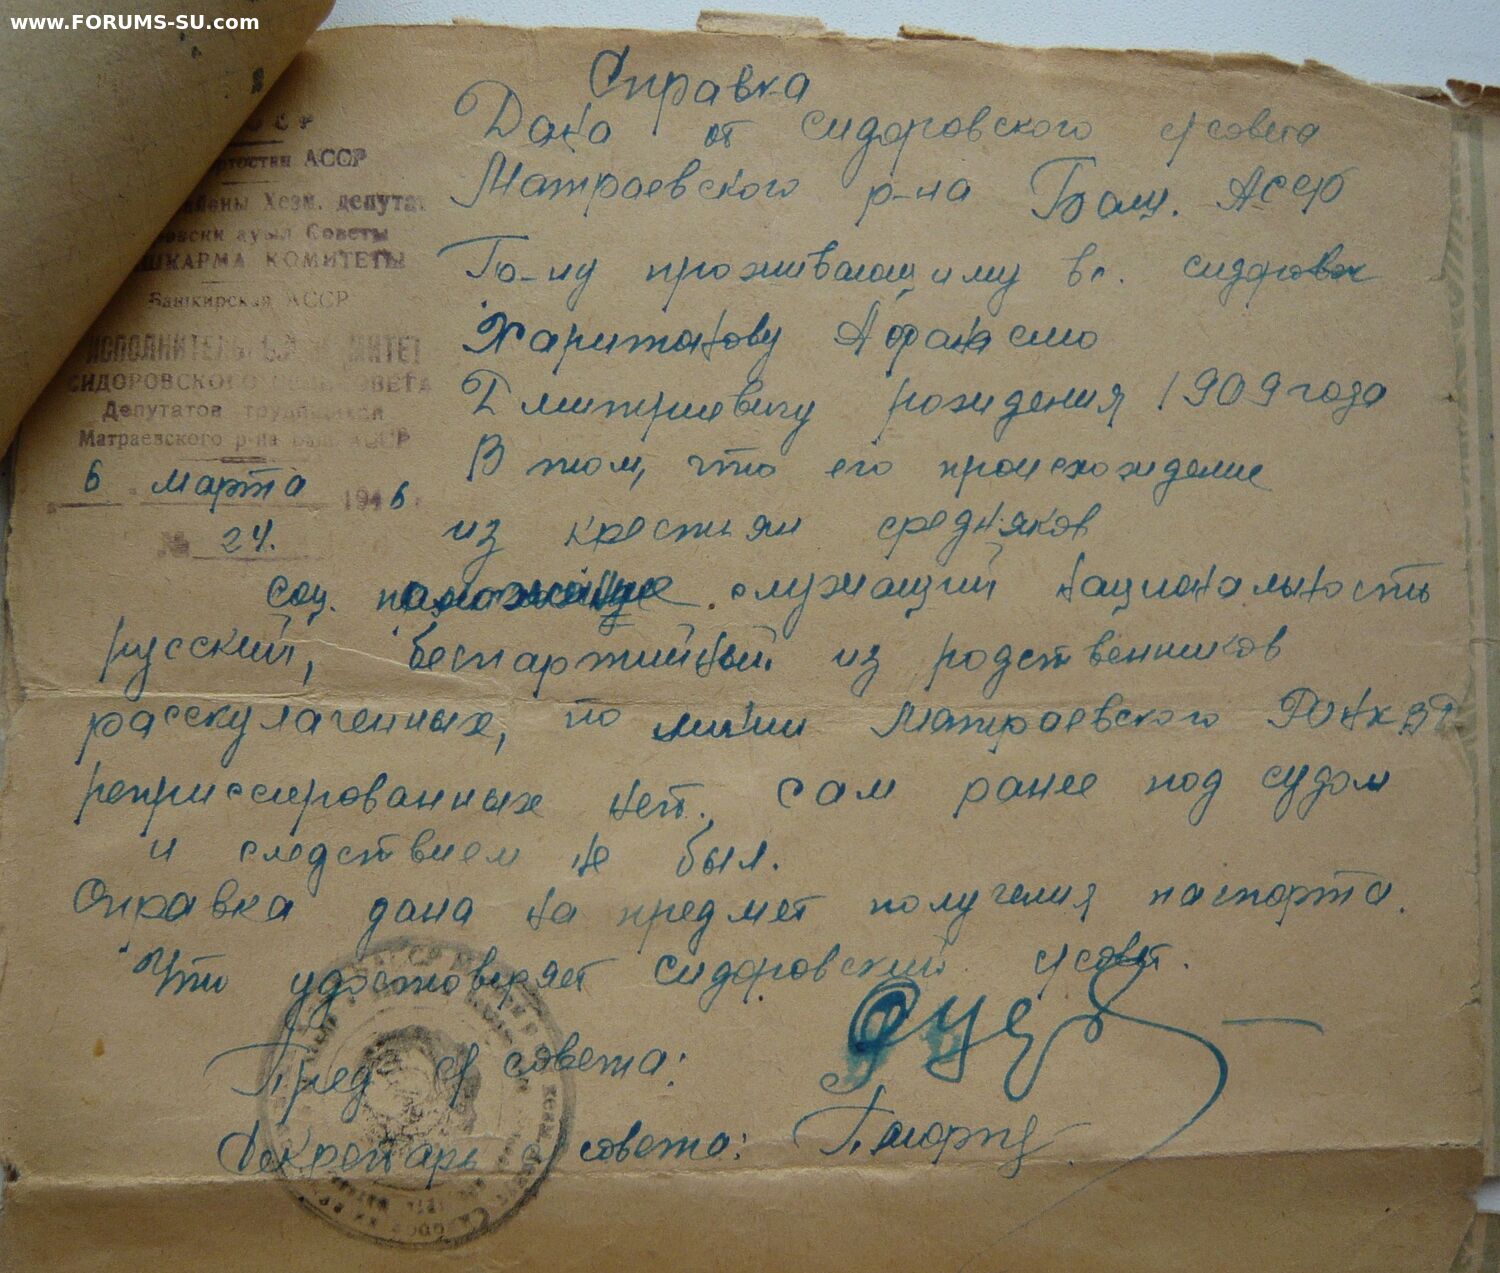 www.FORUMS-SU.com
Справка
Дана от сидоровского с/совета
Матраевского р-на Баш. АССР
Гр-ну проживающиму в с. сидоровк
Харитонову Афанасию
Дмитриевичу рождения 1909 года
В том, что его происхождение
из крестьян средняков
соц. положение служащий национальность
русский, беспартийный из родственников
раскулаченных, по линии Матраевского РОНКВД
репрессированных нет, сам ранее под судом
и следствием не был.
Справка дана на предмет получения паспорта.
Что удостоверяет сидоровский с/совет.
Пред с/совета:
Секретарь с/совета:
АССР
депутат
ауыл Советы
БАШКАРМА КОМИТЕТЫ
Башкирская АССР
ИСПОЛНИТЕЛЬНЫЙ КОМИТЕТ
СИДОРОВСКОГО СЕЛЬСОВЕТА
Депутатов трудящихся
Матраевского р-на Баш. АССР
6 марта 1946 г.
№ 24.